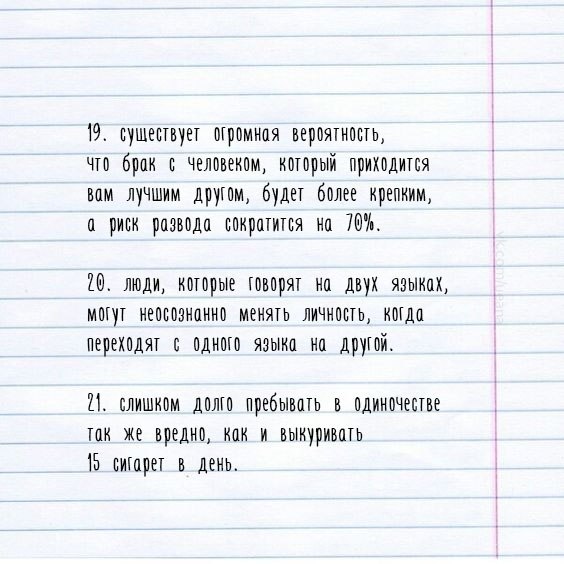 19. существует огромная вероятность,
что брак с человеком, который приходится
вам лучшим другом, будет более крепким,
а риск развода сократится на 70%.
20. люди, которые говорят на двух языках,
могут неосознанно менять личность, когда
переходят с одного языка на другой.
21. слишком долго пребывать в одиночестве
так же вредно, как и выкуривать
15 сигарет в день.